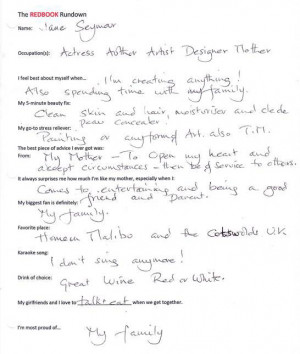 The REDBOOK Rundown
Name: Jane Seymour
Occupation(s): Actress Author Artist Designer Mother
I feel best about myself when... I'm creating anything!
Also spending time with my family.
My 5-minute beauty fix:
Clean skin and hair, moisturiser and
concealer
My go-to stress reliever:
Painting or any form of Art. also T.M.
The best piece of advice I ever got was:
from: My Mother - To open my heart and
accept circumstances - then be of service to others.
It always surprises me how much I'm like my mother, especially when I:
Comes to entertaining and being a good
friend and Parent.
My biggest fan is definitely:
My family.
Favorite place:
Home in Malibu and the Cotswolds U.K.
Karaoke song:
I don't sing anymore!
Drink of choice:
Great Wine Red or White.
My girlfriends and I love to talk + eat when we get together.
I'm most proud of...
My family